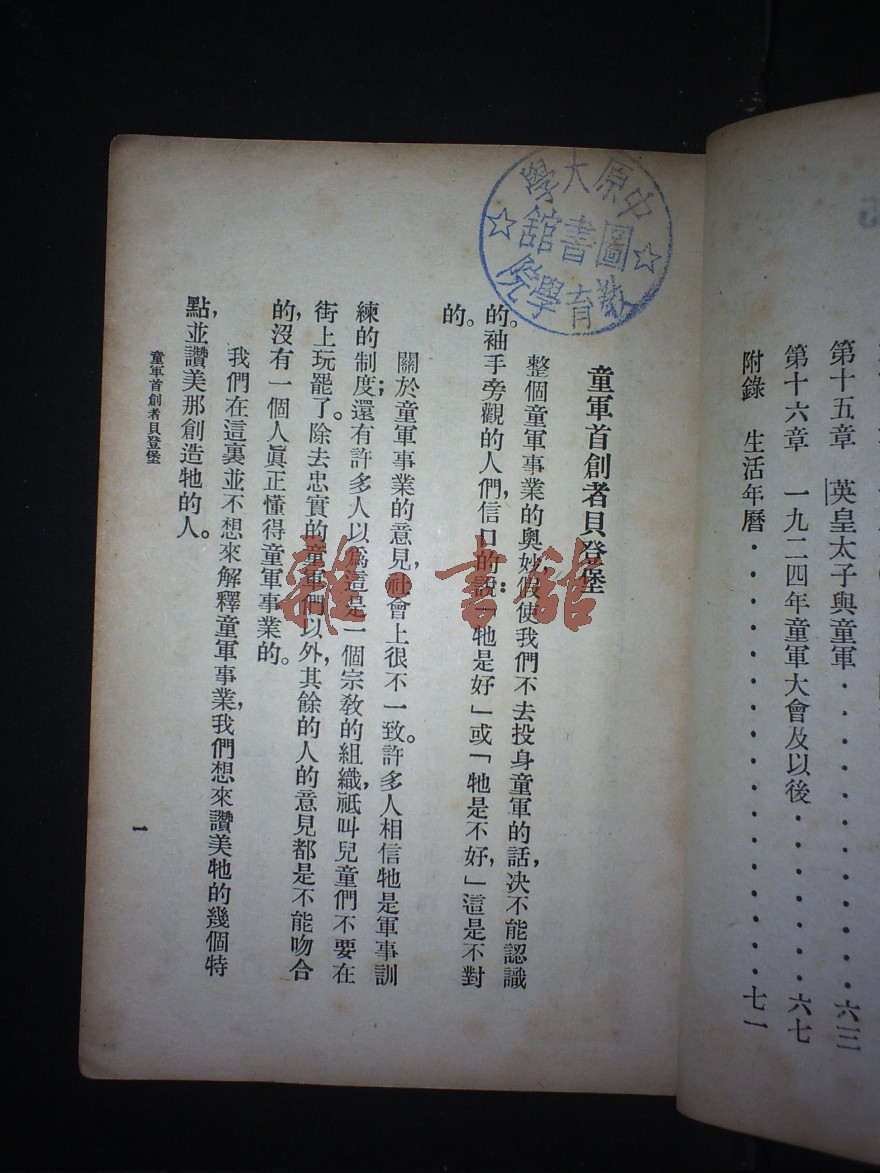 第十五章　英皇太子與童軍．．．．．．．．．．．．六三
第十六章　一九二四年童軍大會及以後．．．．．．．六七
附錄　生活年曆．．．．．．．．．．．．．．．．．七一
中原大學
圖書館
教育學院
童軍首創者貝登堡
整個童軍事業的奧妙，假使我們不去投身童軍的話，決不能認識
的。袖手旁觀的人們，信口的說：「牠是好」或「牠是不好，」這是不對
的。
關於童軍事業的意見，社會上很不一致。許多人相信牠是軍事訓
練的制度；還有許多人以爲這是一個宗教的組織，祗叫兒童們不要在
街上玩罷了。除去忠實的童軍們以外，其餘的人的意見都是不能吻合
的，沒有一個人眞正懂得童軍事業的。
我們在這裏並不想來解釋童軍事業，我們想來讚美牠的幾個特
點，並讚美那創造牠的人。
童軍首創者貝登堡
一
雜·書館